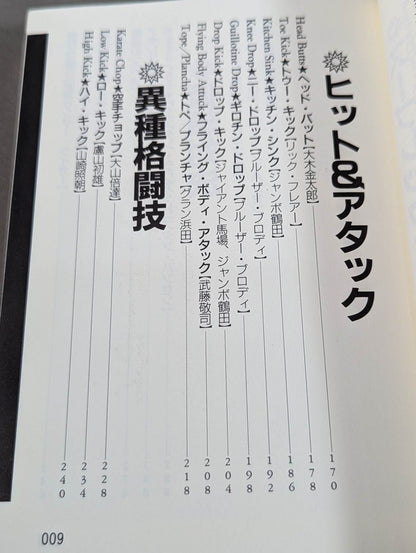 ヒット&アタック
Head Butts★ヘッド・バット【大木金太郎】 170
Toe Kick★トゥー・キック【リック・フレアー】 178
Kitchen Sink★キッチン・シンク【ジャンボ鶴田】 186
Knee Drop★ニー・ドロップ【ブルーザー・ブロディ】 192
Guillotine Drop★ギロチン・ドロップ【ブルーザー・ブロディ】 198
Drop Kick★ドロップ・キック【ジャイアント馬場、ジャンボ鶴田】 204
Flying Body Attuck★フライング・ボディ・アタック【武藤敬司】 208
Tope／Plancha★トペ／プランチャ【グラン浜田】 218
異種格闘技
Karate Chop★空手チョップ【大山倍達】 228
Low Kick★ロー・キック【盧山初雄】 234
High Kick★ハイ・キック【山崎照朝】 240
009